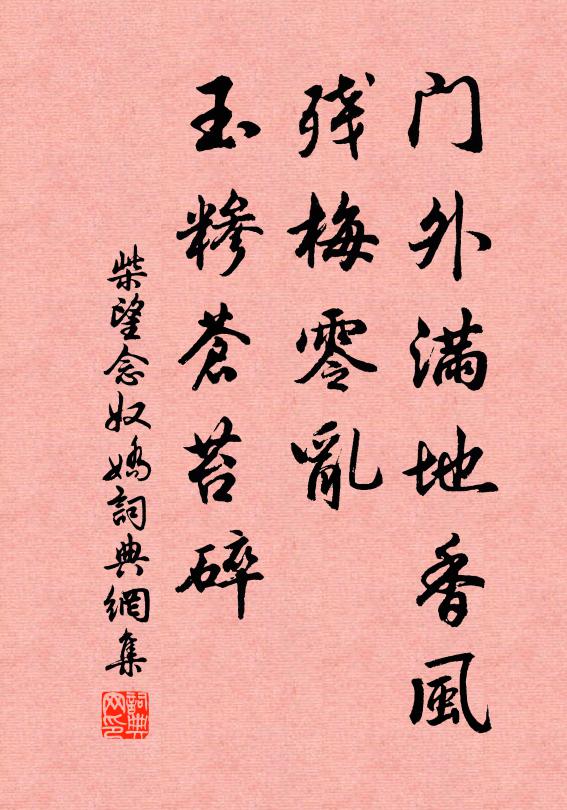 门外满地香風
残梅零亂
玉糁蒼苔碎
柴望念奴嬌詞典網集
詞典网印